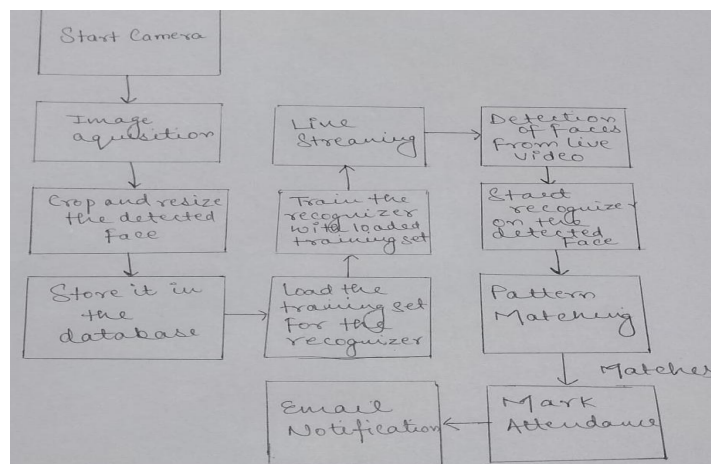 Start Camera
Image
aquisition
Crop and resize
the detected
Face
Store it in
the
database
Load the
training set
For the
recognizer
Train the
recognizer
with loaded
training set
Live
Streaming
Detection
of Faces
From live
Video
Start
recognizer
on the
detected
Face
Pattern
Matching
Matches
Mark
Attendance
Email
Notification